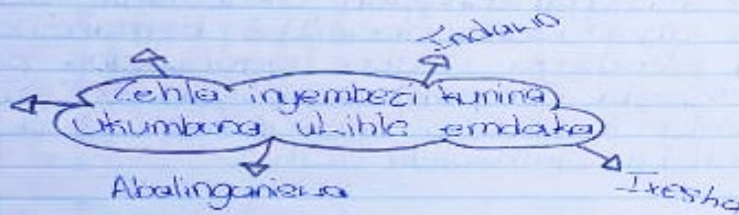 Indawo
Zehla inyembezi kunina
ukumbona uLihle emdaka
Abalinganiswa
Ixesha